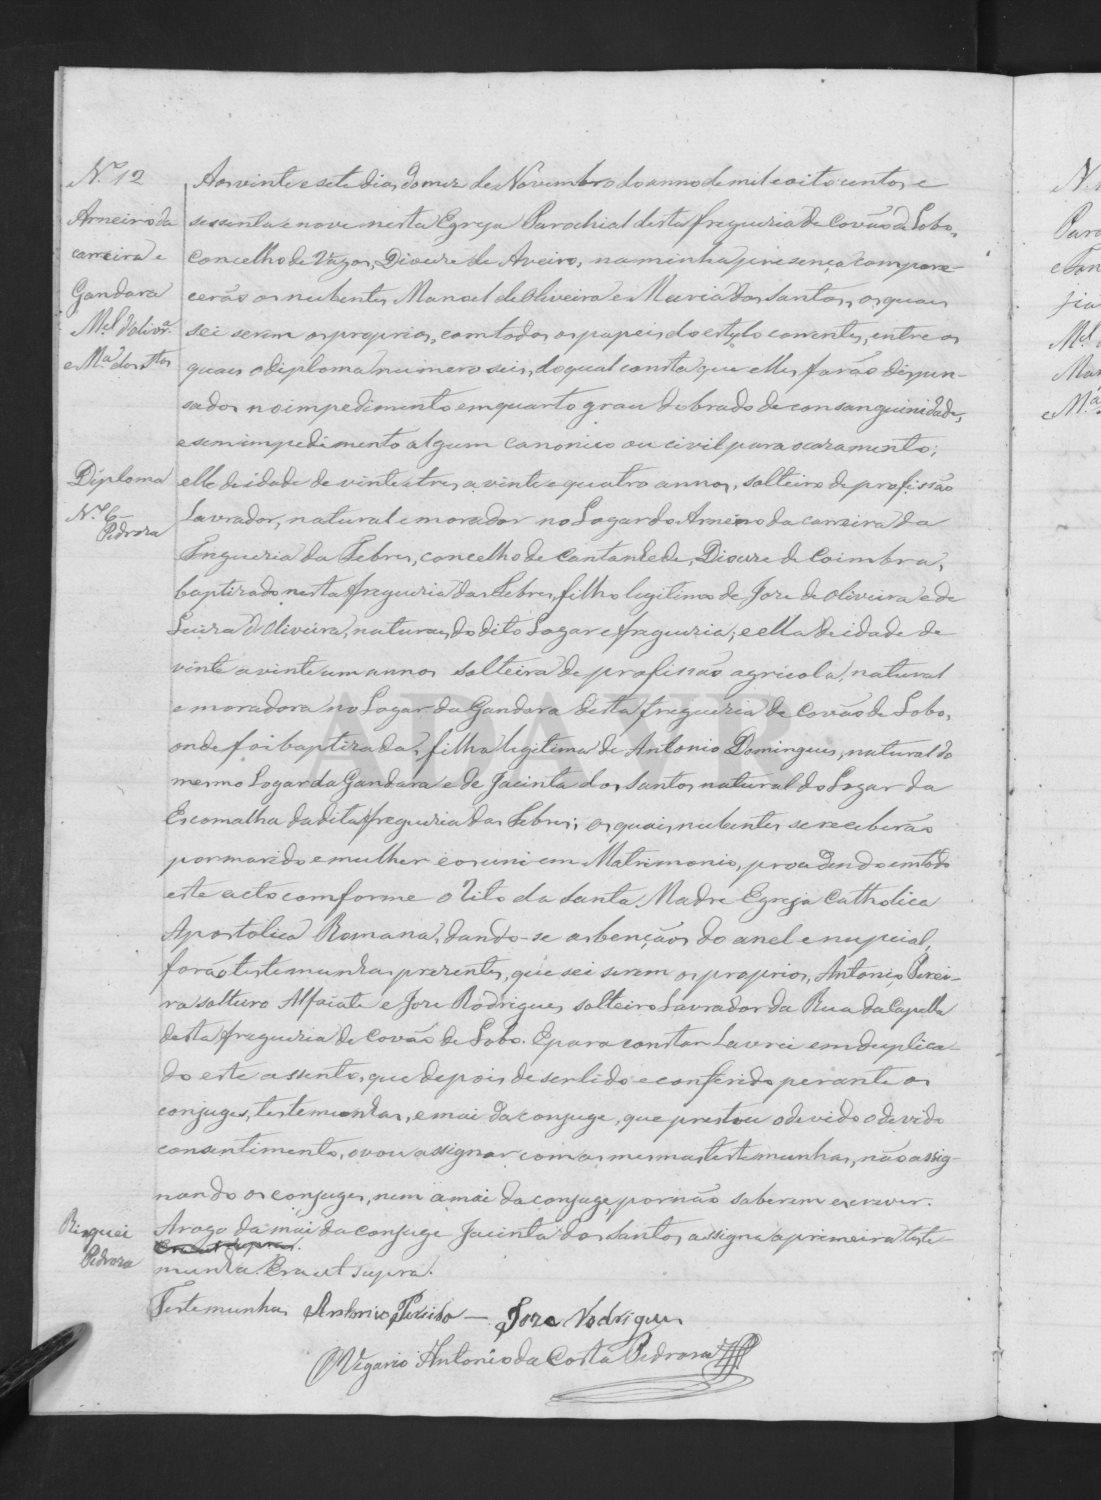 N.º 12
Arneiro da
carreira e
Gandara
M.el d'oliv.ra
e M.a dos S.tos
Diploma
N.º 6–
Pedroza
Aos vinte e sete dias do mez de Novembro do anno de mil e oito centos e
sessenta e nove nesta Egreja Parochial desta freguezia de Covão de Lobo,
concelho de Vagos, Diocese de Aveiro, na minha presença compare-
cerão os nubentes Manoel de Oliveira e Maria dos Santos, os quaes
sei serem os proprios, com todos os papeis do estylo correntes, entre os
quaes o diploma numero seis, do qual consta que elles farão dispen-
sados no impedimento em quarto grau dobrado de consanguinidade,
e sem impedimento algum canonico ou civil para o casamento;
elle de idade de vinte e tres a vinte e quatro annos, solteiro de profissão
Lavrador, natural e morador no Logar do Arneiro da carreira da
Freguezia da Febres, concelho de Cantanhede, Diocese de Coimbra,
baptizado nesta freguezia das Febres, filho legitimo de Joze de Oliveira e de
Luiza d'Oliveira, naturaes do dito Logar e freguezia; e ella de idade de
vinte a vinte um annos solteira de profissão agricola, natural
e moradora no Logar da Gandara desta freguezia de Covão de Lobo,
onde foi baptizada, filha legitima de Antonio Domingues, natural do
mesmo Logar da Gandara e de Jacinta dos Santos natural do Logar da
Escomalha da dita freguezia das Febres; os quaes nubentes se receberão
por marido e mulher e os uni em Matrimonio, procedendo em todo
este acto comforme o Rito da Santa Madre Egreja Catholica
Apostolica Romana, dando-se as bençãos do anel e nupcial,
forão testemunhas prezentes, que sei serem os proprios, Antonio Perei-
ra solteiro Alfaiate e Joze Rodrigues solteiro Lavrador da Rua da Capella
desta freguezia de Covão de Lobo. E para constar Lavrei em duplica-
do este assento, que depois de ser lido e conferido perante os
conjuges, testemunhas, e mai da conjuge, que prestou o devido o devido
consentimento, o vou assignar com as mesmas testemunhas, não assig-
nando os conjuges, nem a mai da conjuge, por não saberem escrever.
Arogo da mai da conjuge Jacinta dos Santos assigna a primeira teste-
Era ut supra.
munha. Era ut supra.
Pedroza
Testemunhas Antonio Pereira — Joze Rodrigues
O Vigario Antonio da Costa Pedroza
ADAVR